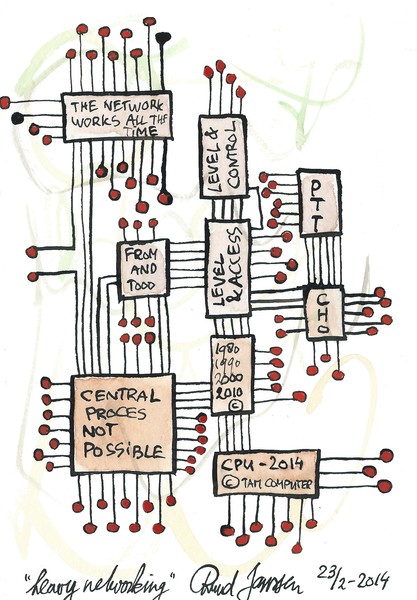 THE NETWORK
WORKS ALL THE
TIME
LEVEL &
CONTROL
PTT
FROM
AND
TODO
LEVEL
& ACCESS
CHO
1980
1990
2000
2010
©
CENTRAL
PROCES
NOT
POSSIBLE
CPU - 2014
© TAM COMPUTER
"heavy networking" Ruud Janssen 23/2-2014